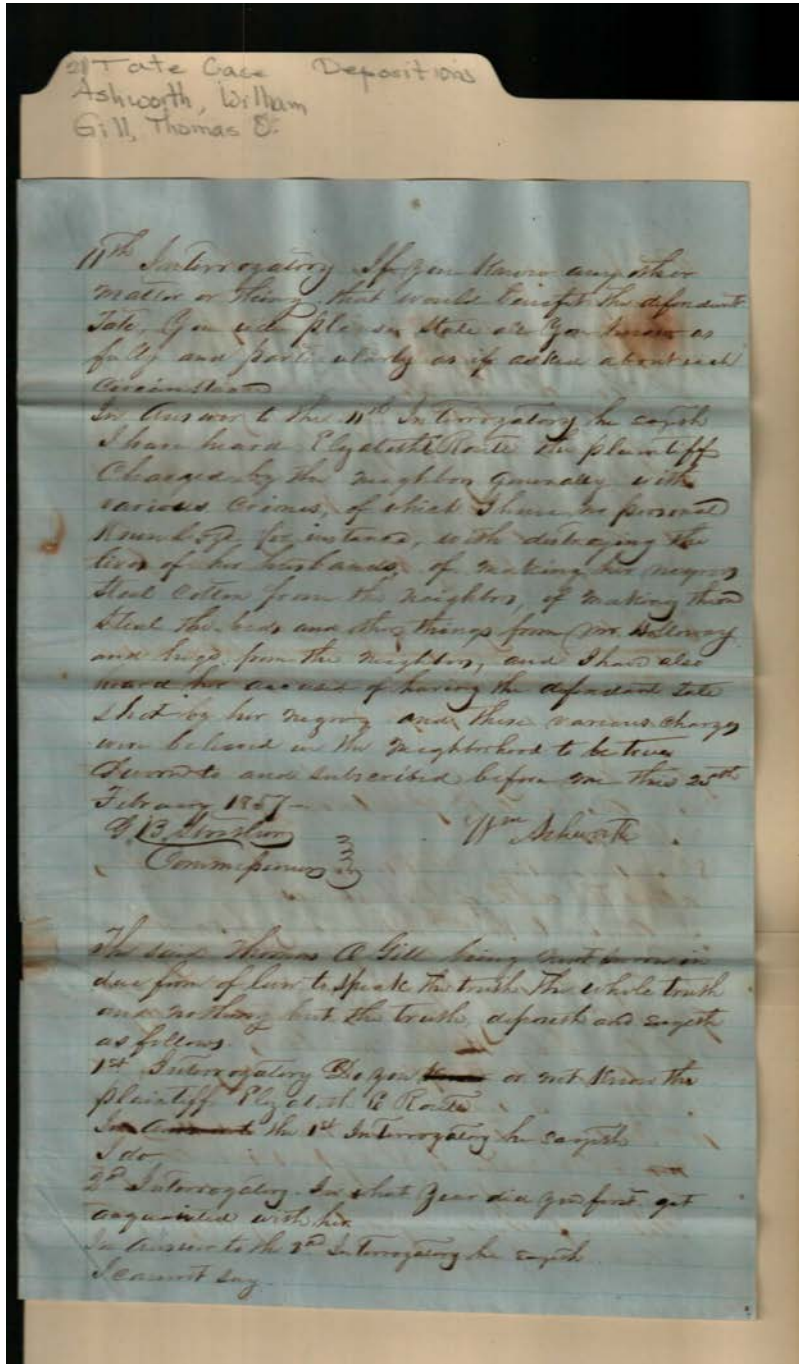 Tate Case Depositions
Ashworth, William
Gill, Thomas
11th Interrogatory If you Know any other
matter or thing that would benefit the defendant
Tate, you will please state all you know as
fully and particularly as if asked about each
circumstance
In Answer to the 11th Interrogatory he sayeth
I have heard Elyzabeth Routt the plaintiff
Charged by the neighbors generally with
various Crimes, of which I have no personal
Knowledge for instance, with destroying the
lives of her husbands, of making her negroes
steal Cotton from the neighbors, of making them
steal the beds and other things from Mr. Holloway
and hogs from the neighbors, and I have also
heard her accused of having the defendant Tate
shot by her negroes and these various charges
were believed in the neighborhood to be true
Sworn to and subscribed before me this 25th
February 1857
Wm Ashworth
Commissioner
The said Thomas A Gill being sworn in
due form of law to speak the truth the whole truth
and nothing but the truth, deposeth and sayeth
as follows.
1st Interrogatory Do you know or not Know the
plaintiff Elyzabeth E Routt
In Answer to the 1st Interrogatory he sayeth
I do
2d Interrogatory. In what year did you first get
acquainted with her
In Answer to the 2nd Interrogatory he sayeth
I cannot say